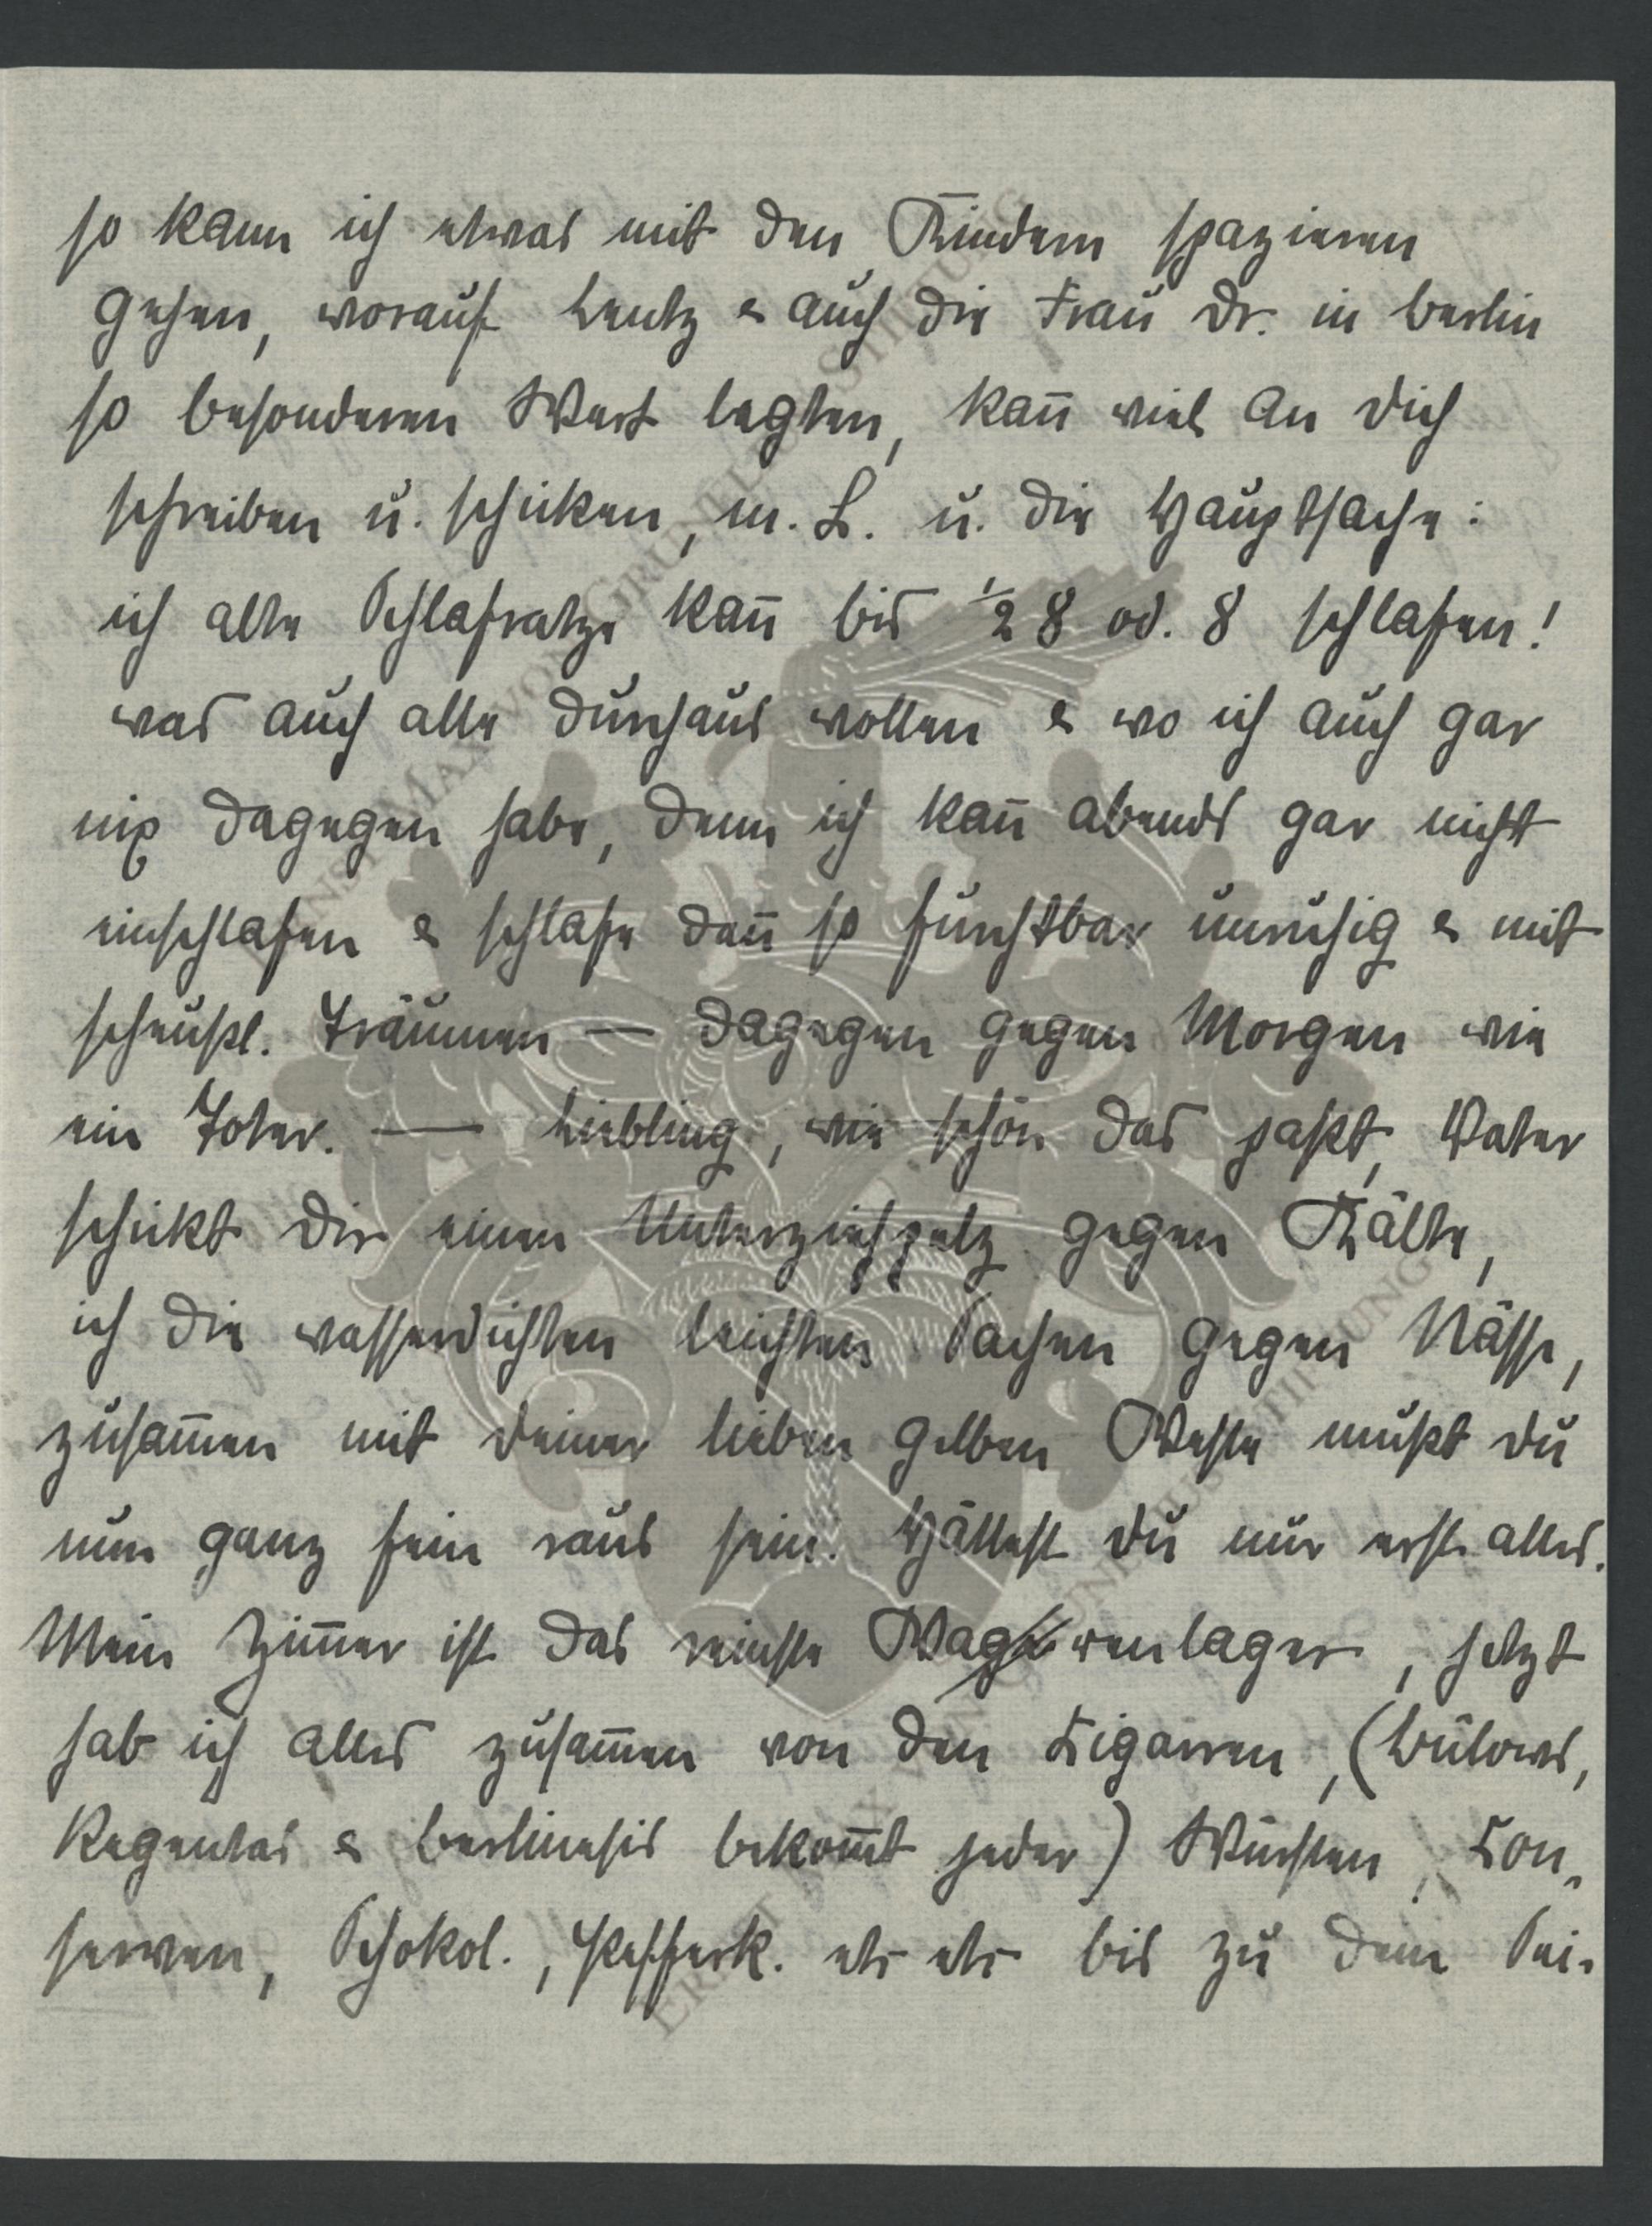 so kann ich etwas mit den Kindern spazieren
gehen, worauf Lentz & auch die Frau Dr. in Berlin
so besonderen Wert legten, kan̄ viel an Dich
schreiben u. schicken, m. L. u. die Hauptsache:
ich alte Schlafratze kan̄ bis ½ 8 od. 8 schlafen!
was auch alle durchaus wollen & wo ich auch gar
nix dagegen habe, denn ich kan̄ abends gar nicht
einschlafen & schlafe dan̄ so furchtbar unruhig & mit
scheußl. Träumen — dagegen gegen Morgen wie
ein Toter. — Liebling, wie schön das paßt, Vater
schickt Dir einen Unterziehpelz gegen Kälte,
ich die wasserdichten leichten Sachen gegen Nässe,
zusam̄en mit Deiner lieben gelben Weste mußt Du
nun ganz fein raus sein. Hättest Du nur erst alles.
Mein Zim̄er ist das reinste Warenlager, jetzt
hab ich alles zusam̄en von den Cigarren, (Bülows,
Regentas & Berlinesis bekom̄t jeder) Würsten, Con-
serven, Schokol., Pfefferk. etc etc bis zu dem Sei-
ERNST MAX VON GRUNELIUS-STIFTUNG